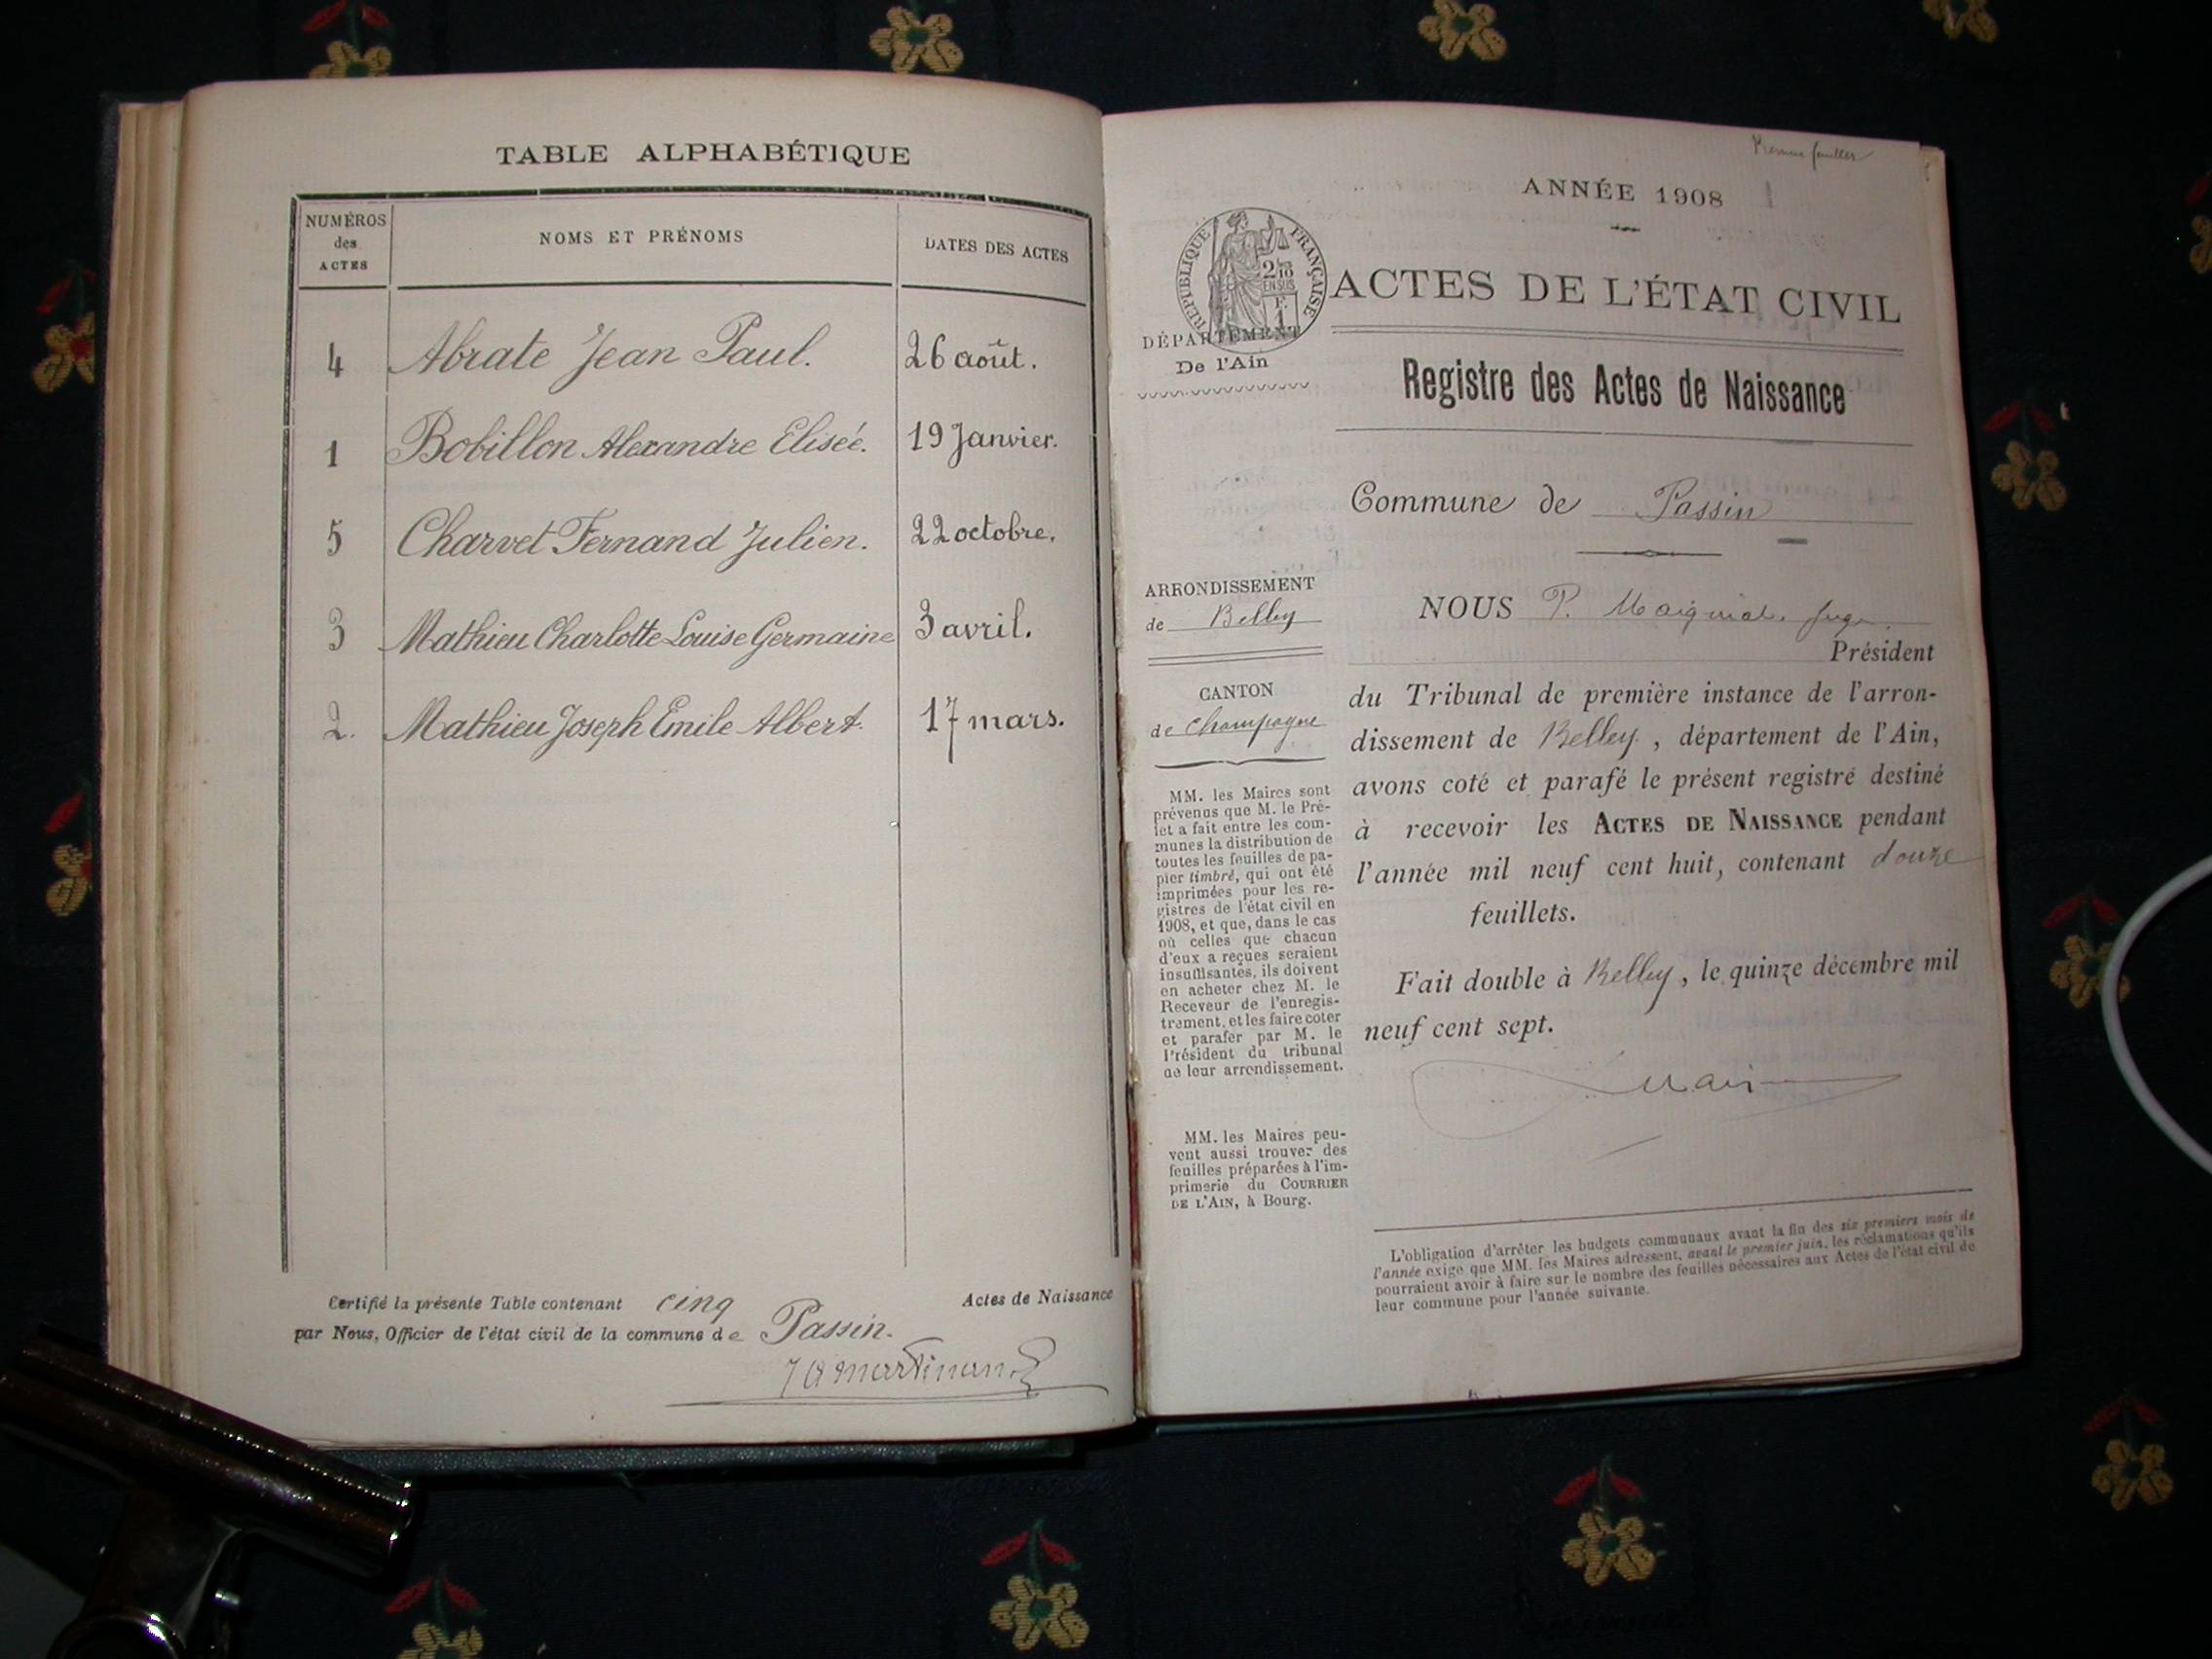 TABLE ALPHABÉTIQUE
NUMÉROS
des
ACTES
NOMS ET PRÉNOMS
DATES DES ACTES
4 Abrate Jean Paul. 26 août.
1 Bobillon Alexandre Elisée. 19 Janvier.
5 Charvet Fernand Julien. 22 octobre.
3 Mathieu Charlotte Louise Germaine 3 avril.
2. Mathieu Joseph Emile Albert. 17 mars.
Certifié la présente Table contenant cinq Actes de Naissance
par Nous, Officier de l'état civil de la commune de Passin.
ANNÉE 1908
RÉPUBLIQUE FRANÇAISE
2/10
EN SUS
F.
1
DÉPARTEMENT
De l'Ain
ACTES DE L'ÉTAT CIVIL
Registre des Actes de Naissance
Commune de Passin
ARRONDISSEMENT
de Belley
CANTON
de Champagne
MM. les Maires sont
prévenus que M. le Pré-
fet a fait entre les com-
munes la distribution de
toutes les feuilles de pa-
pier timbré, qui ont été
imprimées pour les re-
gistres de l'état civil en
1908, et que, dans le cas
où celles que chacun
d'eux a reçues seraient
insuffisantes, ils doivent
en acheter chez M. le
Receveur de l'enregis-
trement, et les faire coter
et parafer par M. le
Président du tribunal
de leur arrondissement.
MM. les Maires peu-
vent aussi trouver des
feuilles préparées à l'im-
primerie du COURRIER
DE L'AIN, à Bourg.
NOUS P. juge
Président
du Tribunal de première instance de l'arron-
dissement de Belley, département de l'Ain,
avons coté et parafé le présent registre destiné
à recevoir les ACTES DE NAISSANCE pendant
l'année mil neuf cent huit, contenant douze
feuillets.
Fait double à Belley, le quinze décembre mil
neuf cent sept.
L'obligation d'arrêter les budgets communaux avant la fin des six premiers mois de
l'année exige que MM. les Maires adressent, avant le premier juin, les réclamations qu'ils
pourraient avoir à faire sur le nombre des feuilles nécessaires aux Actes de l'état civil de
leur commune pour l'année suivante.